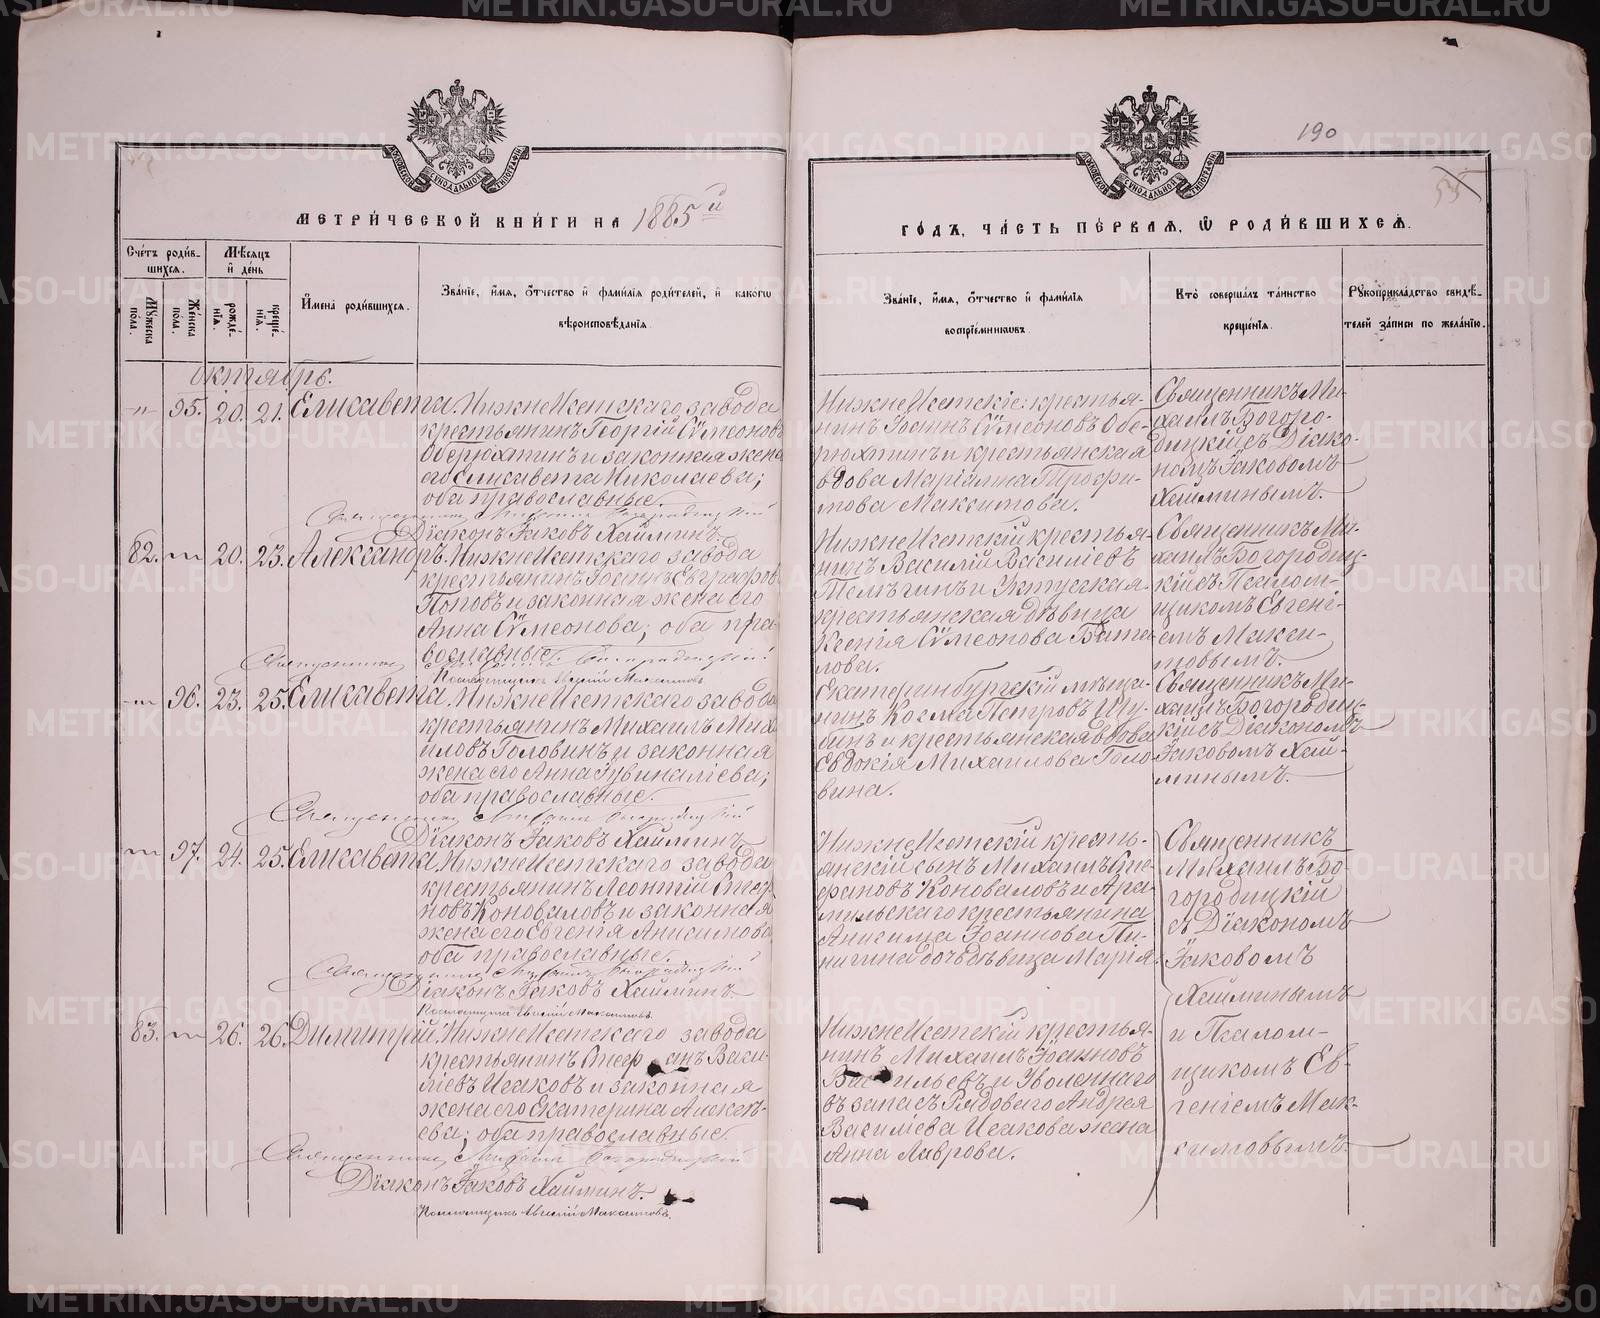 190
55
МЕТРИ́ЧЕСКОЙ КНИ́ГИ НА 1885й
ГО́ДЪ, ЧА́СТЬ ПЕ́РВАѦ, Ѿ РОДИ́ВШИХСѦ.
Сче́тъ роди́в-
шихсѧ.
Мѣ́сѧцъ
и̂ де́нь
Мꙋ́жеска по́ла.
Же́нска по́ла.
рожде́-
нїѧ.
креще́-
нїѧ.
И̂мена̀ роди́вшихсѧ.
Зва́нїе, и̂́мѧ, о́тчество и̂ фами́лїѧ роди́телей, и̂ како́гѡ
вѣроисповѣ́данїѧ.
Зва́нїе, и̂́мѧ, о́тчество и̂ фами́лїѧ
воспрїе́мниковъ.
Кто̀ соверша́лъ та́инство
креще́нїѧ.
Рꙋкоприкла́дство свидѣ́-
телей за́писи по жела́нїю.
Октябрь.
-"- 95. 20. 21. Елисавета. НижнеИсетскаго завода
крестьянинъ Георгій Сѵмеоновъ
Оберюхтинъ и законная жена
его Елисавета Николаева;
оба православные.
Священникъ Михаилъ Богородицкій
Діаконъ Іаковъ Хайминъ.
НижнеИсетскіе: крестья-
нинъ Іоаннъ Сѵмеоновъ Обе-
рюхтинъ и крестьянская
вдова Маріанна Трофи-
мова Максимова.
Священникъ Ми-
хаилъ Богоро-
дицкій съ Діако-
номъ Іаковомъ
Хайминымъ.
82. -"- 20. 23. Александръ. НижнеИсетскаго завода
крестьянинъ Іоаннъ Евграфовъ
Поповъ и законная жена его
Анна Сѵмеонова; оба пра-
вославные.
Священникъ Богородицкій
Псаломщикъ Евгеній Максимовъ
НижнеИсетскій крестья-
нинъ Василій Василіевъ
Телѣгинъ и Уктусская
крестьянская дѣвица
Ксенія Сѵмеонова Бата-
лова.
Священникъ Ми-
хаилъ Богородиц-
кій съ Псалом-
щикомъ Евгені-
емъ Макси-
мовымъ.
-"- 96. 23. 25. Елисавета. НижнеИсетскаго завода
крестьянинъ Михаилъ Миха-
иловъ Головинъ и законная
жена его Анна Іувиналіева;
оба православные.
Священникъ Михаилъ Богородицкій
Діаконъ Іаковъ Хайминъ
Екатеринбургскій мѣща-
нинъ Косма Петровъ Шу-
бинъ и крестьянская вдова
Евдокія Михаилова Голо-
вина.
Священникъ Ми-
хаилъ Богородиц-
кій съ Діакономъ
Іаковомъ Хай-
минымъ.
-"- 97. 24. 25. Елисавета. НижнеИсетскаго завода
крестьянинъ Леонтій Стефа-
новъ Коноваловъ и законная
жена его Евгенія Анисимова
оба православные.
Священникъ Михаилъ Богородицкій
Діаконъ Іаковъ Хайминъ.
Псаломщикъ Евгеній Максимовъ.
НижнеИсетскій кресть-
янскій сынъ Михаилъ Сте-
фановъ Коноваловъ и Ара-
мильскаго крестьянина
Анисима Іоаннова Пи-
нигина дочь дѣвица Марія.
Священникъ
Михаилъ Бо-
городицкій
съ Діакономъ
Іаковомъ
Хайминымъ
и Псалом-
щикомъ Ев-
геніемъ Мак-
симовымъ.
83. -"- 26. 26. Димитрій. НижнеИсетскаго завода
крестьянинъ Стефанъ Васи-
ліевъ Исаковъ и законная
жена его Екатерина Алексѣ-
ева; оба православные.
Священникъ Михаилъ Богородицкій
Діаконъ Іаковъ Хайминъ.
Псаломщикъ Евгеній Максимовъ.
НижнеИсетскій крестья-
нинъ Михаилъ Іоанновъ
Васильевъ и Уволеннаго
въ запасъ Рядоваго Андрея
Василіева Исакова жена
Анна Лаврова.